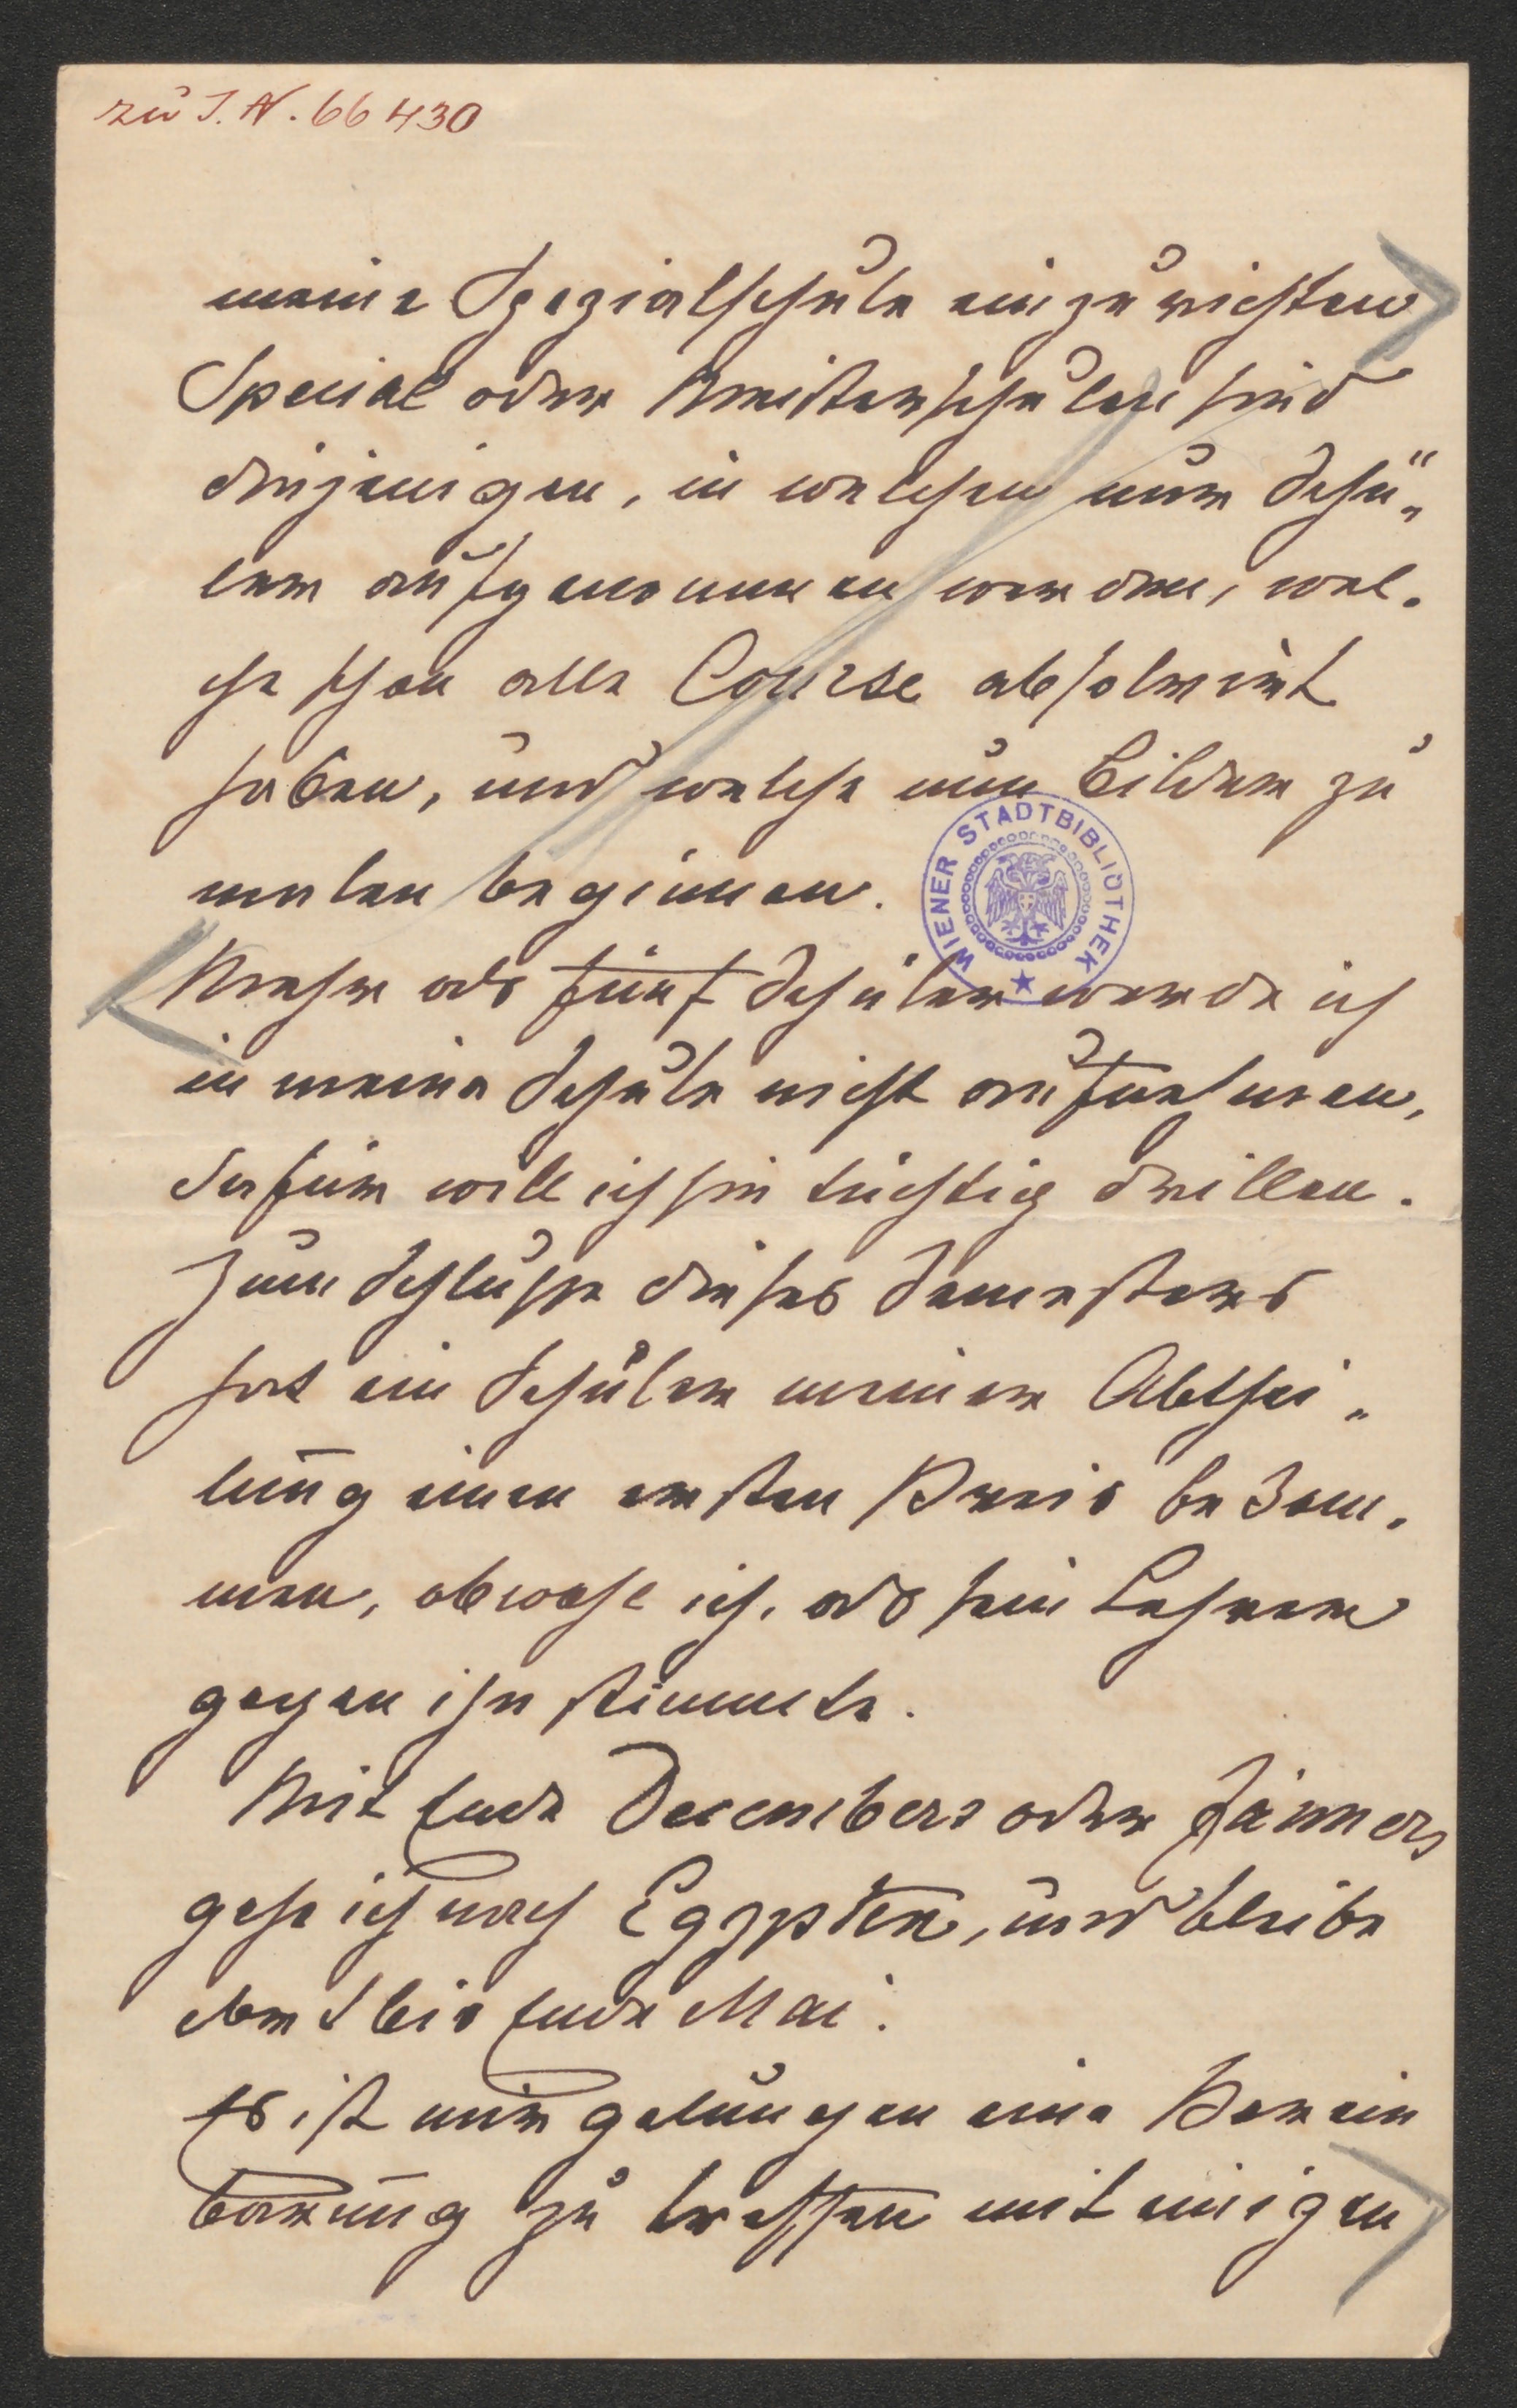 zu I. N. 66430
meine Spezialschule einzurichten
Special oder Meisterschulen sind
diejenigen, in welchen nur Schü„
ler aufgenommen werden, wel.
che schon alle Course absolvirt
haben, und welche nun Bilder zu
malen beginnen.
WIENER STADTBIBLIOTHEK
Mehr als fünf Schüler werde ich
in meine Schule nicht aufnehmen,
dafür will ich sie tüchtig drillen.
Zum Schlusse dieses Semesters
hat ein Schüler meiner Abthei„
lung einen ersten Preis bekom„
men, obwohl ich, als sein Lehrer
gegen ihn stimmte.
Mit Ende Decembers oder Jänners
gehe ich nach Egypten, und bleibe
dort bis Ende Mai.
Es ist mir gelungen eine Verein
barung zu treffen mit einigen